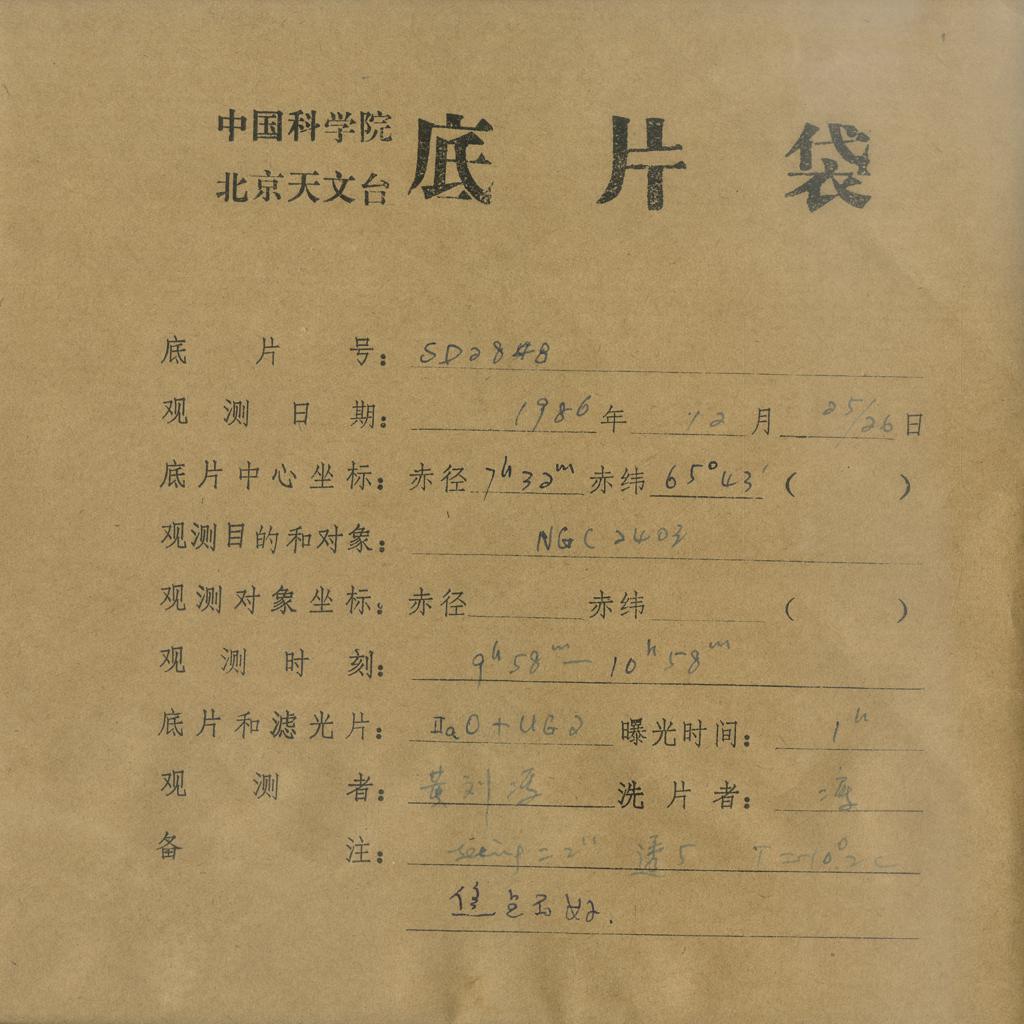 中国科学院
北京天文台
底片袋
底片号：SD2848
观测日期：1986年12月25/26日
底片中心坐标：赤径7ʰ32ᵐ赤纬65°43′（ ）
观测目的和对象：NGC2403
观测对象坐标：赤径 赤纬 （ ）
观测时刻：9ʰ58ᵐ—10ʰ58ᵐ
底片和滤光片：ⅡaO+UG2 曝光时间：1ʰ
观测者：黄刘 洗片者：
备注：seeing=2″ 透5
好.